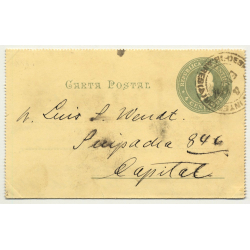 CARTA POSTAL
Luis L. Wendt.
Suipacha 846
Capital